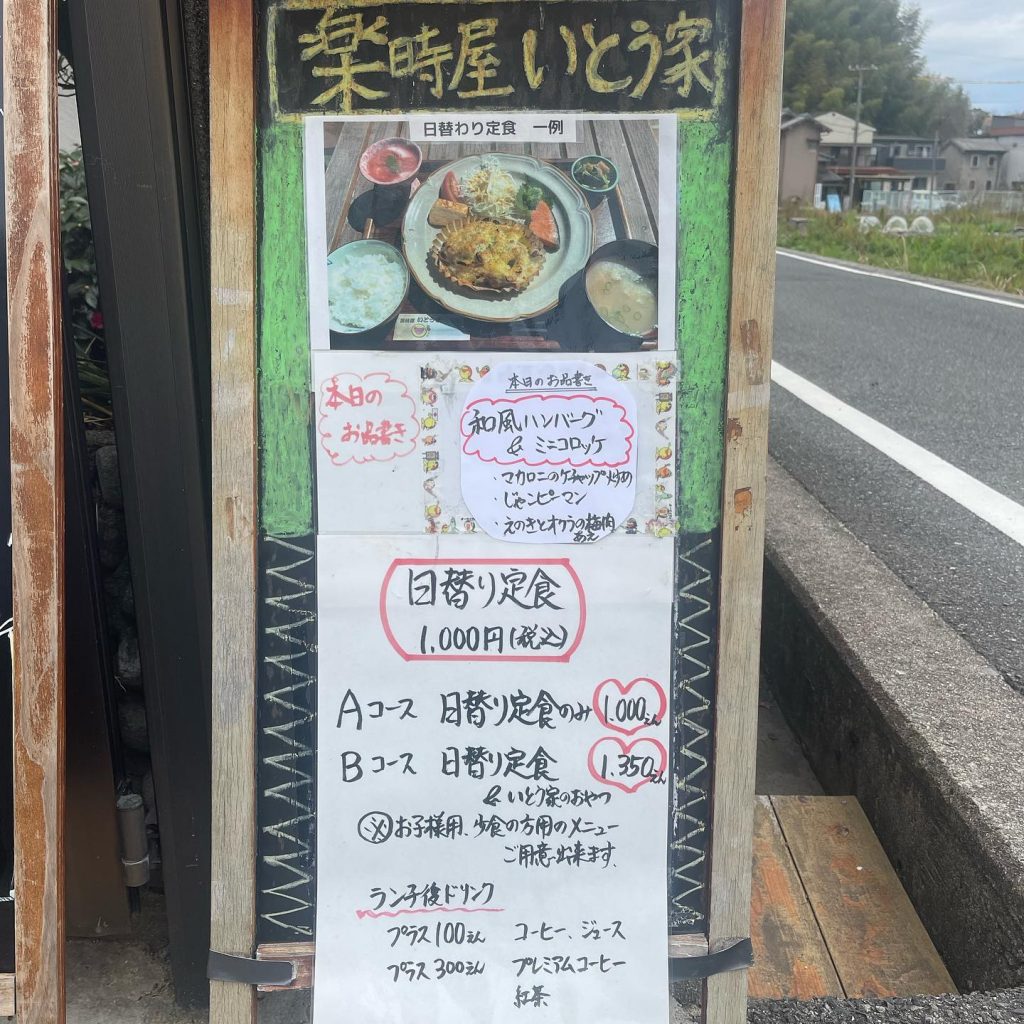 楽時屋 いとう家
日替わり定食 一例
本日の
お品書き
本日のお品書き
和風ハンバーグ
& ミニコロッケ
・マカロニのケチャップ炒め
・じゃこピーマン
・えのきとオクラの梅肉
あえ
日替り定食
1,000円(税込)
Aコース 日替り定食のみ 1.000えん
Bコース 日替り定食 1.350えん
& いとう家のおやつ
※お子様用、少食の方用のメニュー
ご用意出来ます、
ランチ後ドリンク
プラス100えん コーヒー、ジュース
プラス300えん プレミアムコーヒー
紅茶